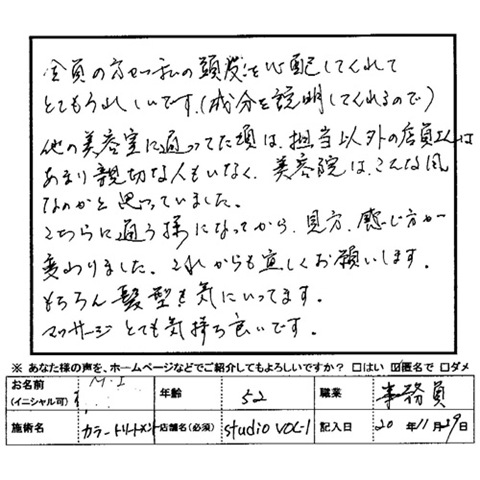 全員の方が私の頭髪を心配してくれて
とてもうれしいです。(成分を説明してくれるので)
他の美容室に通ってた頃は、担当以外の店員さんは
あまり親切な人もいなく、美容院は、こんな風
なのかと思っていました。
こちらに通う様になってから、見方、感じ方が
変わりました。これからも宜しくお願いします。
もちろん髪型も気にいってます。
マッサージとても気持ち良いです。
※ あなた様の声を、ホームページなどでご紹介してもよろしいですか? □はい ☑匿名で □ダメ
お名前 (イニシャル可) M.I 年齢 52 職業 事務員
施術名 カラートリートメント 店舗名(必須) studio VOL-1 記入日 20年11月29日